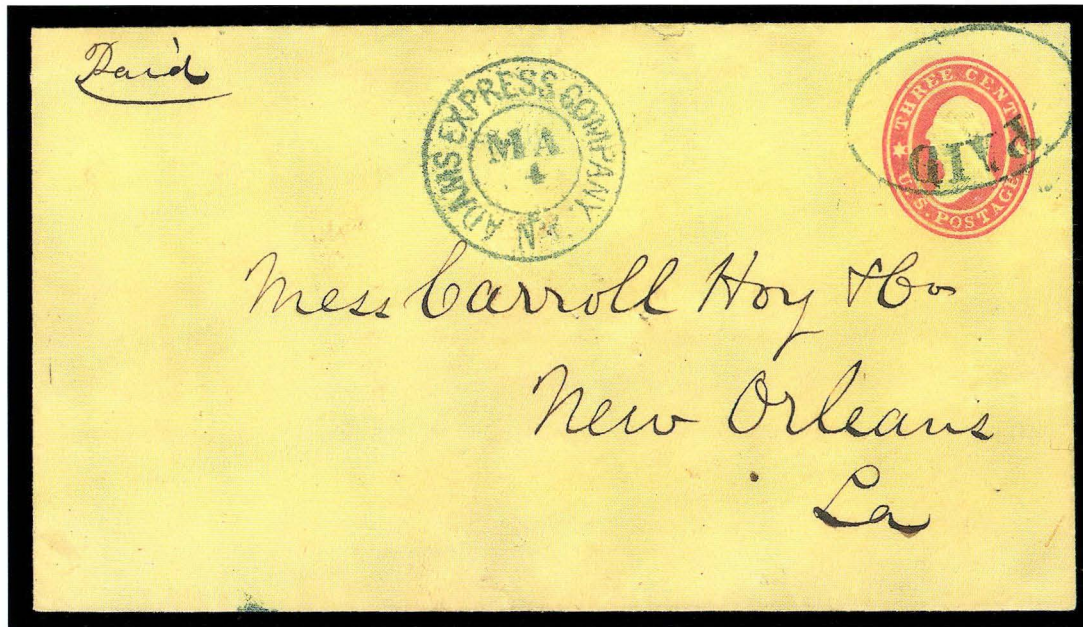 Paid
ADAMS EXPRESS COMPANY. N.Y.
MA
4
THREE CENTS
U.S. POSTAGE
PAID
Mess Carroll Hoy & Co
New Orleans
La